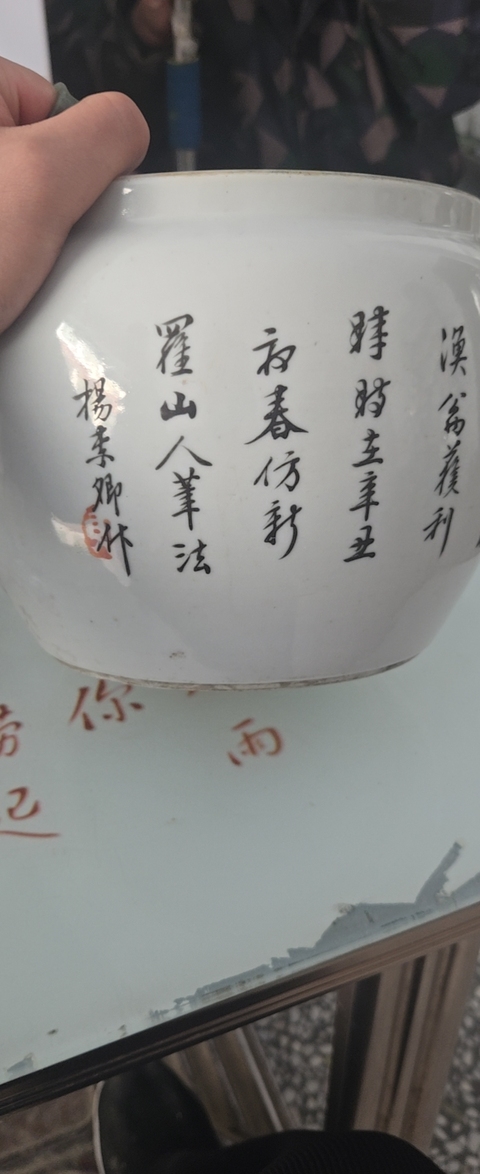 漁翁獲利
時在辛丑
初春仿新
羅山人筆法
楊素卿作
你
雨
起